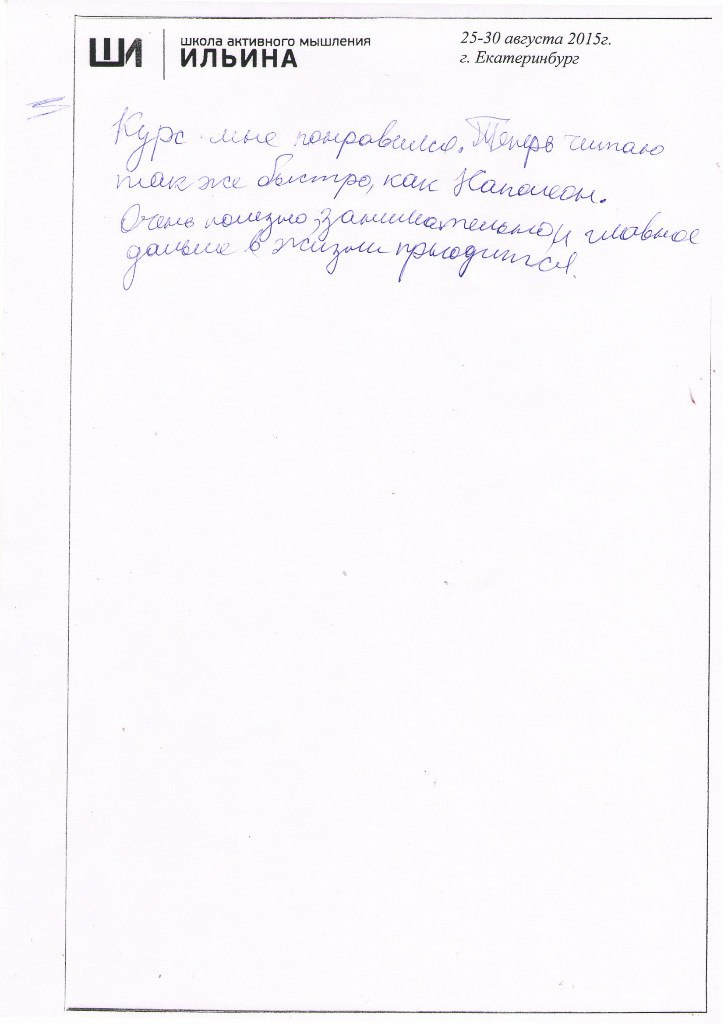 ШИ
школа активного мышления
ИЛЬИНА
25-30 августа 2015г.
г. Екатеринбург
Курс мне понравился. Теперь читаю
так же быстро, как Наполеон.
Очень полезно, занимательно и главное
дальше в жизни пригодится.